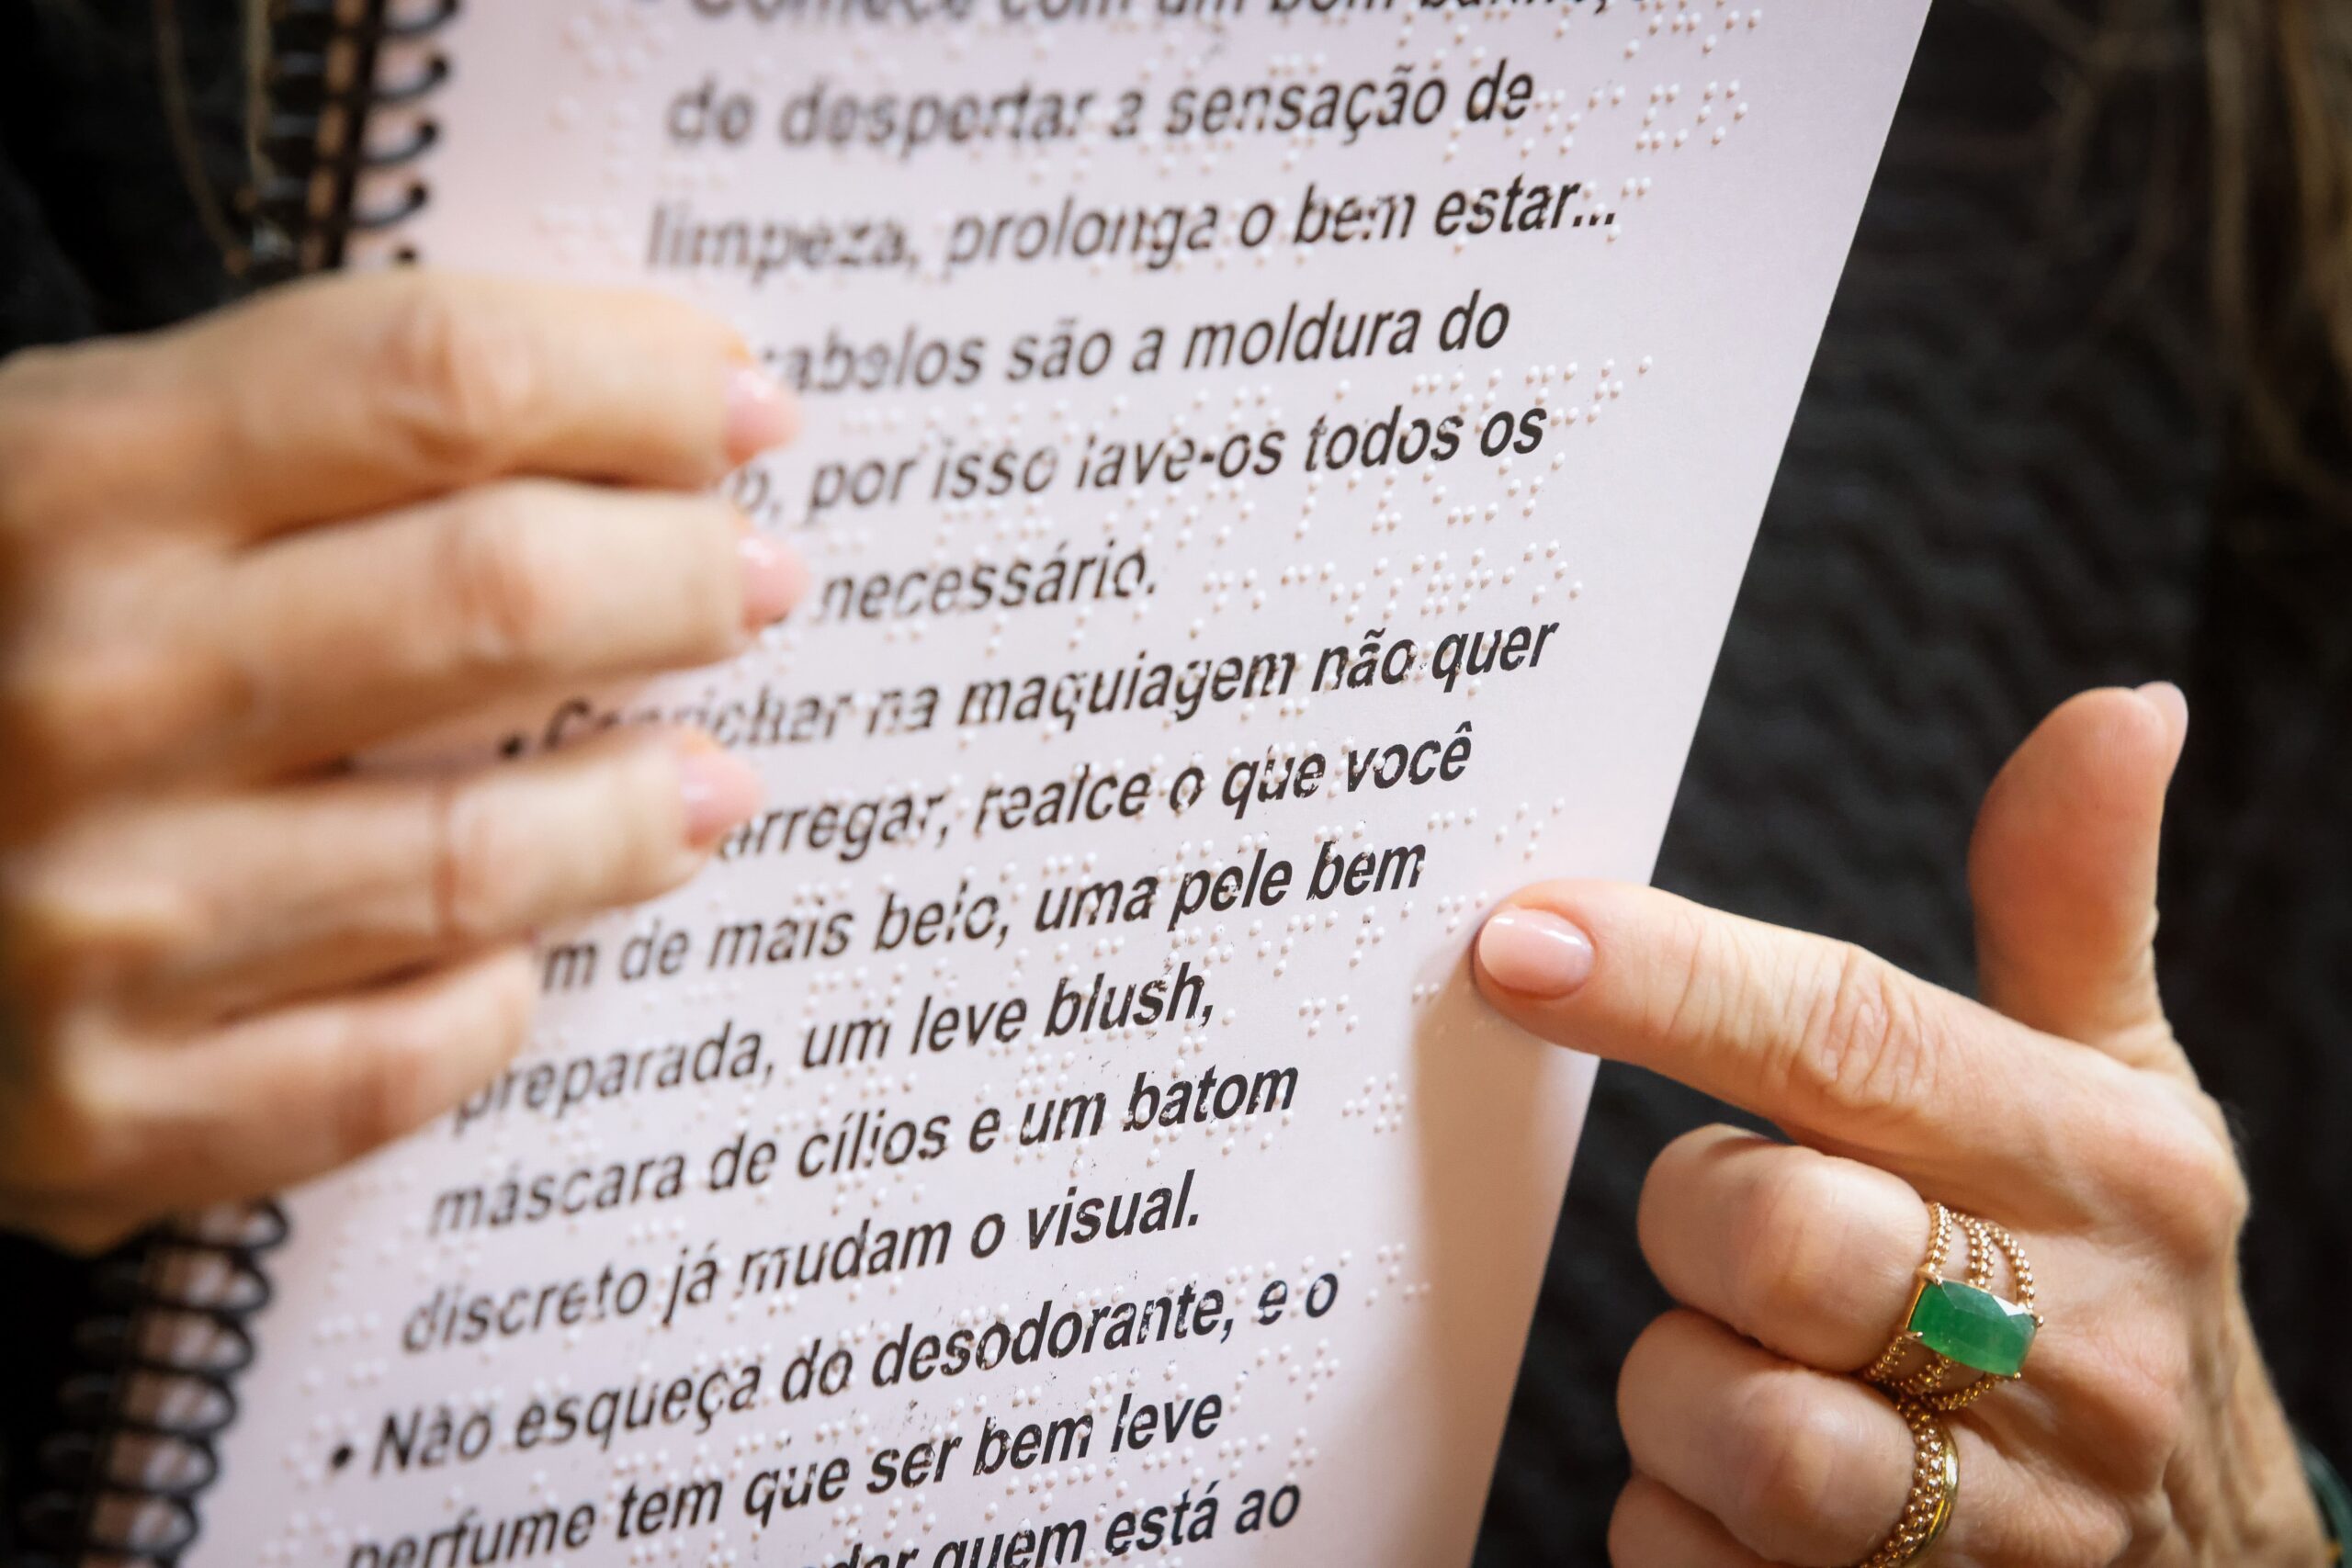 Comece com um bom banho,
de despertar a sensação de
limpeza, prolonga o bem estar...
cabelos são a moldura do
por isso lave-os todos os
necessário.
• Caprichar na maquiagem não quer
realce o que você
de mais belo, uma pele bem
preparada, um leve blush,
máscara de cílios e um batom
discreto já mudam o visual.
• Não esqueça do desodorante, e o
perfume tem que ser bem leve
quem está ao